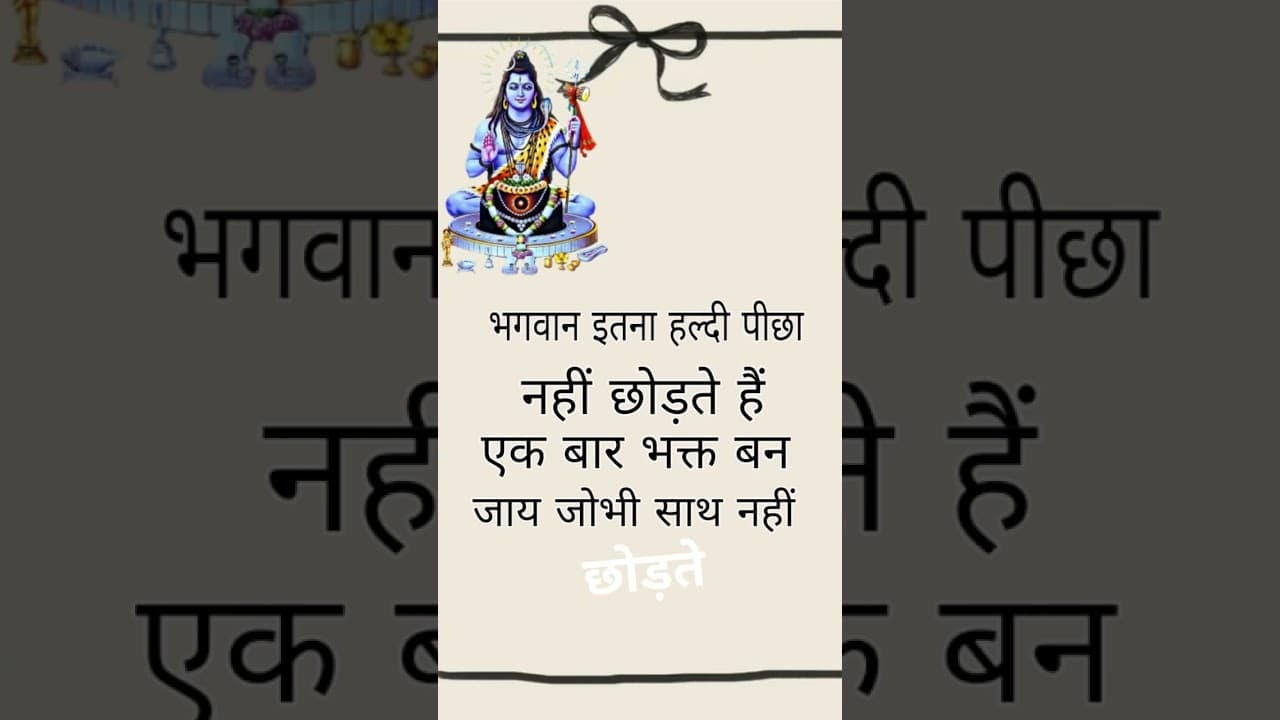 भगवान इतना हल्दी पीछा
नहीं छोड़ते हैं
एक बार भक्त बन
जाय जोभी साथ नहीं
छोड़ते